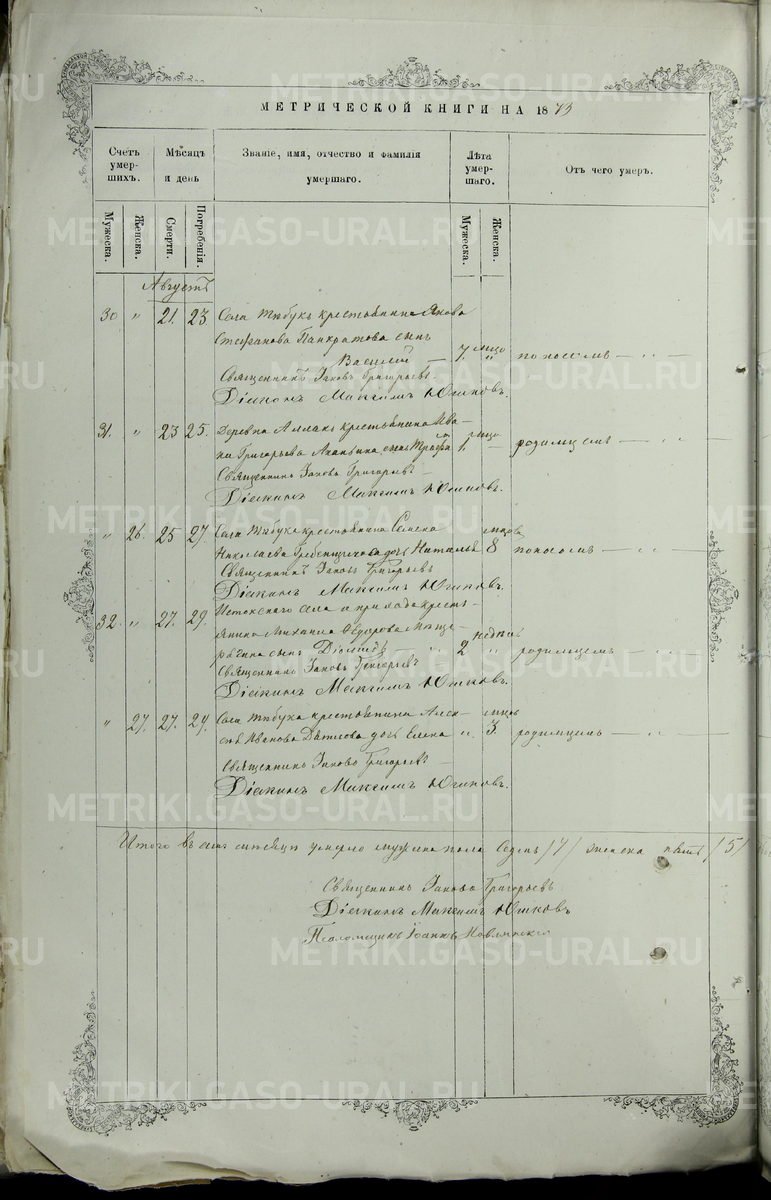 МЕТРИЧЕСКОЙ КНИГИ НА 1873
Счетъ умер- шихъ.
Мѣсяцъ и день
Званіе, имя, отчество и фамилія умершаго.
Лѣта умер- шаго.
Отъ чего умеръ.
Мужеска.
Женска.
Смерти.
Погребенія.
Мужеска.
Женска.
Августъ
30 " 21. 23. Села крестьянина Якова
Стефанова Панкратова сынъ
Василій — 7. " поносомъ — " —
Священникъ Іаковъ Григорьевъ.
Діаконъ Максимъ Юшковъ.
31. " 23 25. Деревни крестьянина Ива-
на Григорьева сынъ 1. — родимцемъ — " —
Священникъ Іаковъ Григорьевъ
Діаконъ Максимъ Юшковъ.
" 26. 25 27. Села крестьянина Семена
Николаева дочь Наталья 8 поносомъ — " —
Священникъ Іаковъ Григорьевъ
Діаконъ Максимъ Юшковъ.
32. " 27. 29. Истокскаго села и прихода кресть-
янина Михаила Ѳедорова
сынъ 2 недѣль " родимцемъ — " —
Священникъ Іаковъ Григорьевъ
Діаконъ Максимъ Юшковъ.
" 27. 27. 29. Села крестьянина Алек-
сѣя Иванова дочь Елена " 3. родимцемъ — " —
Священникъ Іаковъ Григорьевъ —
Діаконъ Максимъ Юшковъ.
Итого въ семъ мѣсяцѣ умерло мужеска пола седмь /7/ женска пять /5/
Священникъ Іаковъ Григорьевъ
Діаконъ Максимъ Юшковъ
Псаломщикъ Іоаннъ
METRIKI.GASO-URAL.RU